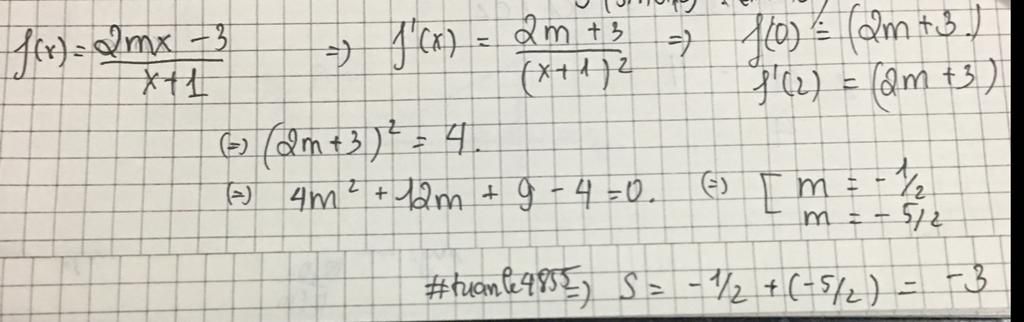 f(x) = \frac{2mx - 3}{x + 1} => f'(x) = \frac{2m + 3}{(x + 1)^2} => f'(0) = (2m + 3)
f'(2) = (2m + 3)
(=) (2m + 3)^2 = 4.
(=) 4m^2 + 12m + 9 - 4 = 0. (=) [ m = - 1/2
m = - 5/2
#tuanle4855 => S = - 1/2 + (- 5/2) = - 3